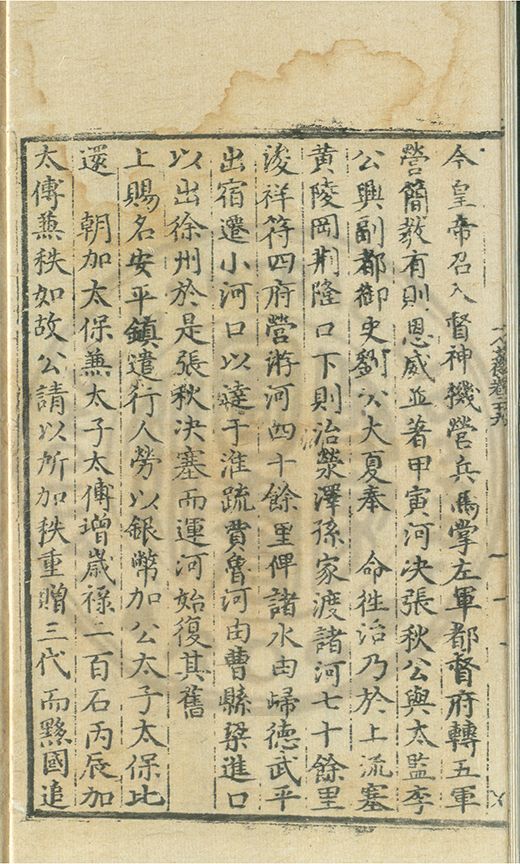 今皇帝召入督神機營兵馬掌左軍都督府轉五軍
營簡教有則恩威並著甲寅河決張秋公與太監李
公興副都御史劉公大夏奉　命徃治乃於上流塞
黄陵岡荆隆口下則治滎澤孫家渡諸河七十餘里
浚祥符四府營淤河四十餘里俾諸水由歸德武平
出宿遷小河口以達于淮疏賈魯河由曹縣梁進口
以出徐州於是張秋决塞而運河始復其舊
上賜名安平鎮遣行人勞以銀幣加公太子太保比
還　朝加太保兼太子太傅增歲禄二百石丙辰加
太傅兼秩如故公請以所加秩重贈三代而黔國追